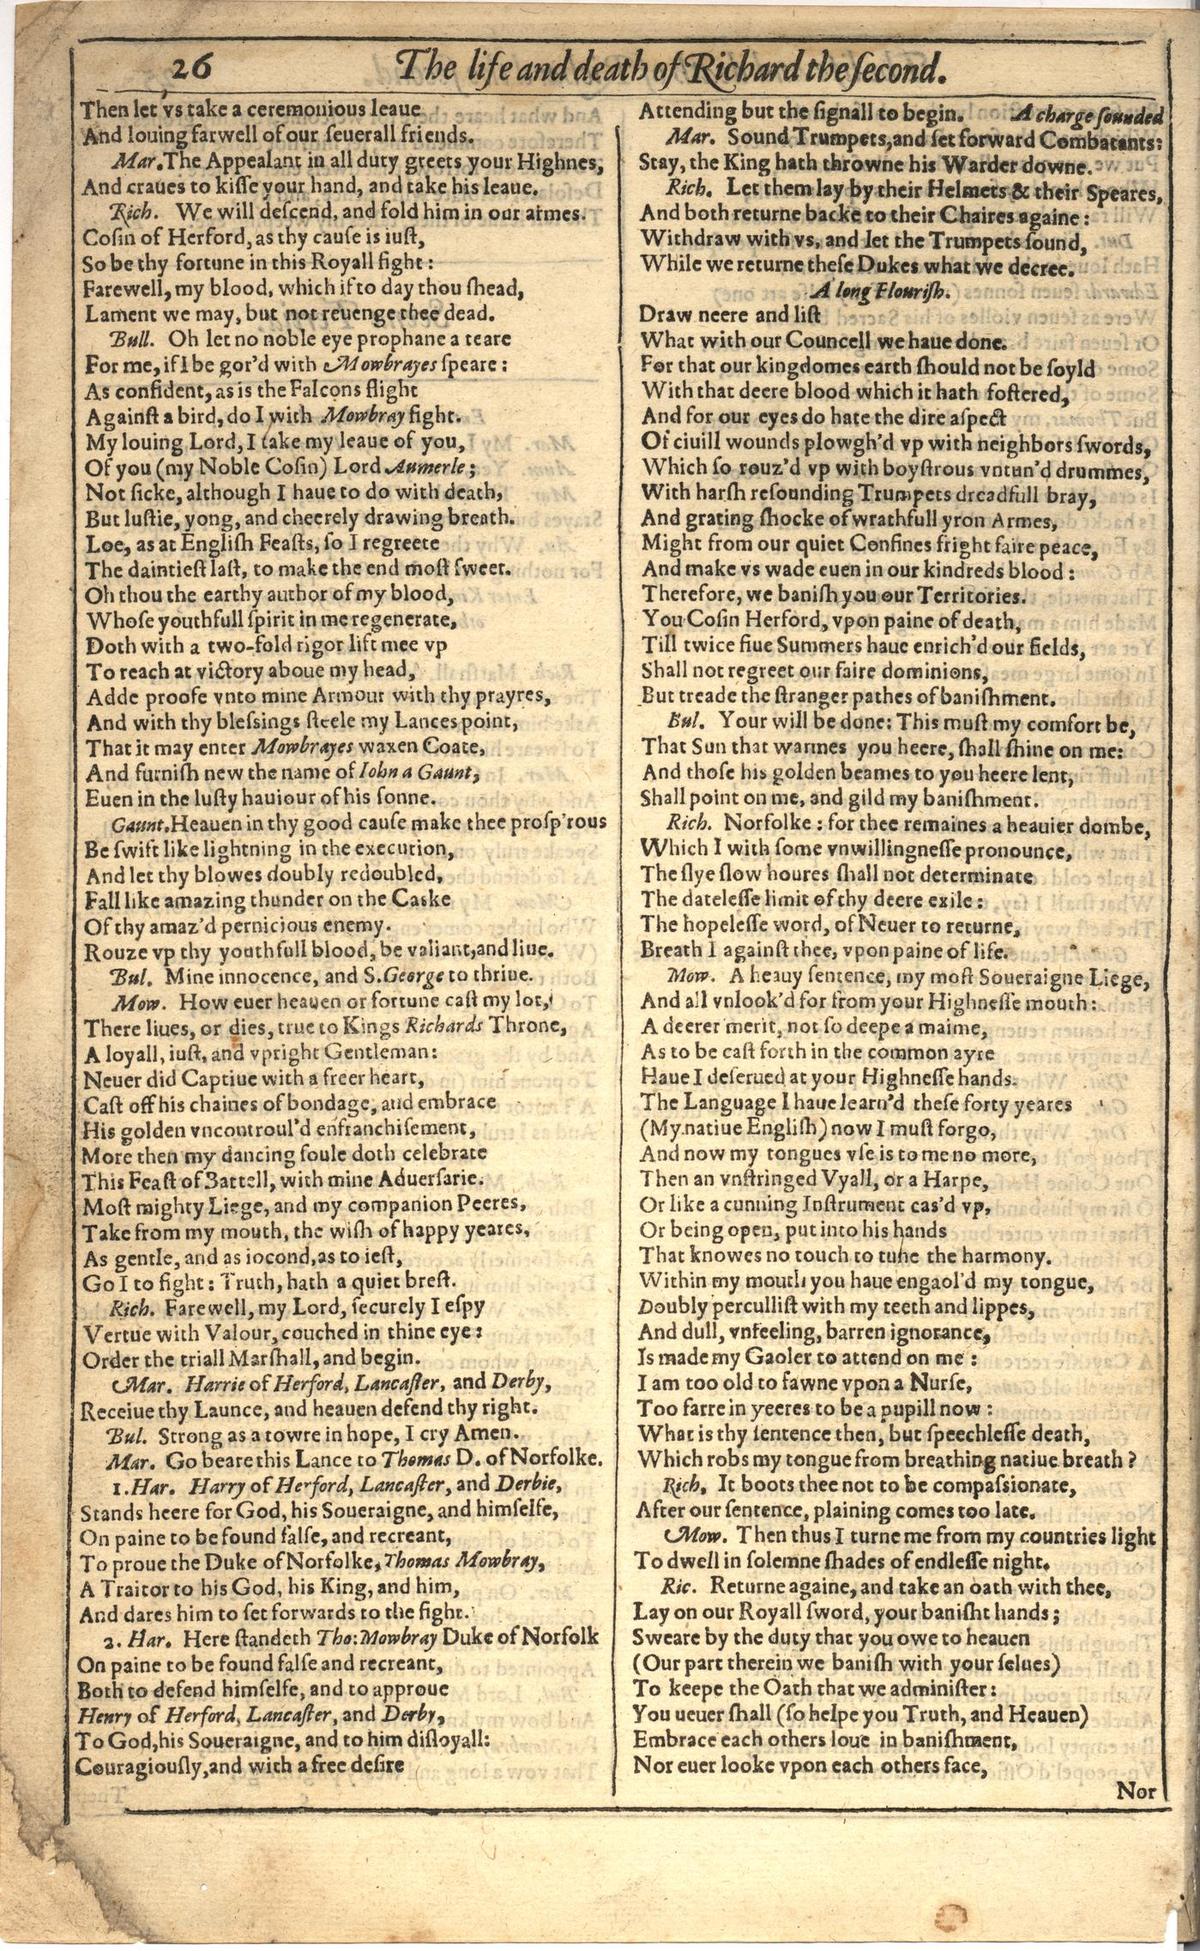 26
The life and death of Richard the ſecond.
Then let vs take a ceremonious leaue
And louing farwell of our ſeuerall friends.
Mar. The Appealant in all duty greets your Highnes,
And craues to kiſſe your hand, and take his leaue.
Rich. We will deſcend, and fold him in our armes.
Coſin of Herford, as thy cauſe is iuſt,
So be thy fortune in this Royall fight:
Farewell, my blood, which if to day thou ſhead,
Lament we may, but not reuenge thee dead.
Bull. Oh let no noble eye prophane a teare
For me, if I be gor'd with Mowbrayes ſpeare:
As confident, as is the Falcons flight
Againſt a bird, do I with Mowbray fight.
My louing Lord, I take my leaue of you,
Of you (my Noble Coſin) Lord Aumerle;
Not ſicke, although I haue to do with death,
But luſtie, yong, and cheerely drawing breath.
Loe, as at Engliſh Feaſts, ſo I regreete
The daintieſt laſt, to make the end moſt ſweet.
Oh thou the earthy author of my blood,
Whoſe youthfull ſpirit in me regenerate,
Doth with a two-fold rigor lift mee vp
To reach at victory aboue my head,
Adde proofe vnto mine Armour with thy prayres,
And with thy bleſſings ſteele my Lances point,
That it may enter Mowbrayes waxen Coate,
And furniſh new the name of Iohn a Gaunt,
Euen in the luſty hauiour of his ſonne.
Gaunt. Heauen in thy good cauſe make thee proſp'rous
Be ſwift like lightning in the execution,
And let thy blowes doubly redoubled,
Fall like amazing thunder on the Caske
Of thy amaz'd pernicious enemy.
Rouze vp thy youthfull blood, be valiant, and liue.
Bul. Mine innocence, and S. George to thriue.
Mow. How euer heauen or fortune caſt my lot,
There liues, or dies, true to Kings Richards Throne,
A loyall, iuſt, and vpright Gentleman:
Neuer did Captiue with a freer heart,
Caſt off his chaines of bondage, and embrace
His golden vncontroul'd enfranchiſement,
More then my dancing ſoule doth celebrate
This Feaſt of Battell, with mine Aduerſarie.
Moſt mighty Liege, and my companion Peeres,
Take from my mouth, the wiſh of happy yeares,
As gentle, and as iocond, as to ieſt,
Go I to fight: Truth, hath a quiet breſt.
Rich. Farewell, my Lord, ſecurely I eſpy
Vertue with Valour, couched in thine eye:
Order the triall Marſhall, and begin.
Mar. Harrie of Herford, Lancaſter, and Derby,
Receiue thy Launce, and heauen defend thy right.
Bul. Strong as a towre in hope, I cry Amen.
Mar. Go beare this Lance to Thomas D. of Norfolke.
1. Har. Harry of Herford, Lancaſter, and Derbie,
Stands heere for God, his Soueraigne, and himſelfe,
On paine to be found falſe, and recreant,
To proue the Duke of Norfolke, Thomas Mowbray,
A Traitor to his God, his King, and him,
And dares him to ſet forwards to the fight.
2. Har. Here ſtandeth Tho: Mowbray Duke of Norfolk
On paine to be found falſe and recreant,
Both to defend himſelfe, and to approue
Henry of Herford, Lancaſter, and Derby,
To God, his Soueraigne, and to him diſloyall:
Couragiouſly, and with a free deſire
Attending but the ſignall to begin. A charge ſounded
Mar. Sound Trumpets, and ſet forward Combatants:
Stay, the King hath throwne his Warder downe.
Rich. Let them lay by their Helmets & their Speares,
And both returne backe to their Chaires againe:
Withdraw with vs, and let the Trumpets ſound,
While we returne theſe Dukes what we decree.
A long Flouriſh.
Draw neere and liſt
What with our Councell we haue done.
For that our kingdomes earth ſhould not be ſoyld
With that deere blood which it hath foſtered,
And for our eyes do hate the dire aſpect
Of ciuill wounds plowgh'd vp with neighbors ſwords,
Which ſo rouz'd vp with boyſtrous vntun'd drummes,
With harſh reſounding Trumpets dreadfull bray,
And grating ſhocke of wrathfull yron Armes,
Might from our quiet Confines fright faire peace,
And make vs wade euen in our kindreds blood:
Therefore, we baniſh you our Territories.
You Coſin Herford, vpon paine of death,
Till twice fiue Summers haue enrich'd our fields,
Shall not regreet our faire dominions,
But treade the ſtranger pathes of baniſhment.
Bul. Your will be done: This muſt my comfort be,
That Sun that warmes you heere, ſhall ſhine on me:
And thoſe his golden beames to you heere lent,
Shall point on me, and gild my baniſhment.
Rich. Norfolke: for thee remaines a heauier dombe,
Which I with ſome vnwillingneſſe pronounce,
The ſlye ſlow houres ſhall not determinate
The dateleſſe limit of thy deere exile:
The hopeleſſe word, of Neuer to returne,
Breath I againſt thee, vpon paine of life.
Mow. A heauy ſentence, my moſt Soueraigne Liege,
And all vnlook'd for from your Highneſſe mouth:
A deerer merit, not ſo deepe a maime,
As to be caſt forth in the common ayre
Haue I deſerued at your Highneſſe hands.
The Language I haue learn'd theſe forty yeares
(My natiue Engliſh) now I muſt forgo,
And now my tongues vſe is to me no more,
Then an vnſtringed Vyall, or a Harpe,
Or like a cunning Inſtrument cas'd vp,
Or being open, put into his hands
That knowes no touch to tune the harmony.
Within my mouth you haue engaol'd my tongue,
Doubly perculliſt with my teeth and lippes,
And dull, vnfeeling, barren ignorance,
Is made my Gaoler to attend on me:
I am too old to fawne vpon a Nurſe,
Too farre in yeeres to be a pupill now:
What is thy ſentence then, but ſpeechleſſe death,
Which robs my tongue from breathing natiue breath?
Rich. It boots thee not to be compaſſionate,
After our ſentence, plaining comes too late.
Mow. Then thus I turne me from my countries light
To dwell in ſolemne ſhades of endleſſe night.
Ric. Returne againe, and take an oath with thee,
Lay on our Royall ſword, your baniſht hands;
Sweare by the duty that you owe to heauen
(Our part therein we baniſh with your ſelues)
To keepe the Oath that we adminiſter:
You ueuer ſhall (ſo helpe you Truth, and Heauen)
Embrace each others loue in baniſhment,
Nor euer looke vpon each others face,
Nor